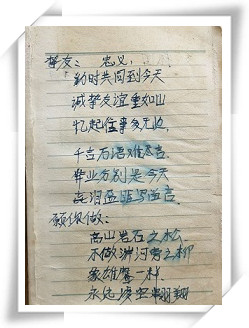 挚友：忠义，
幼时共同到今天
诚挚友谊重如山
忆起往事多无边，
千言万语难尽言.
毕业分别是今天
言
愿你做：
高山岩石之松
不做湖河旁之柳
象雄鹰一样
永远凌空翱翔